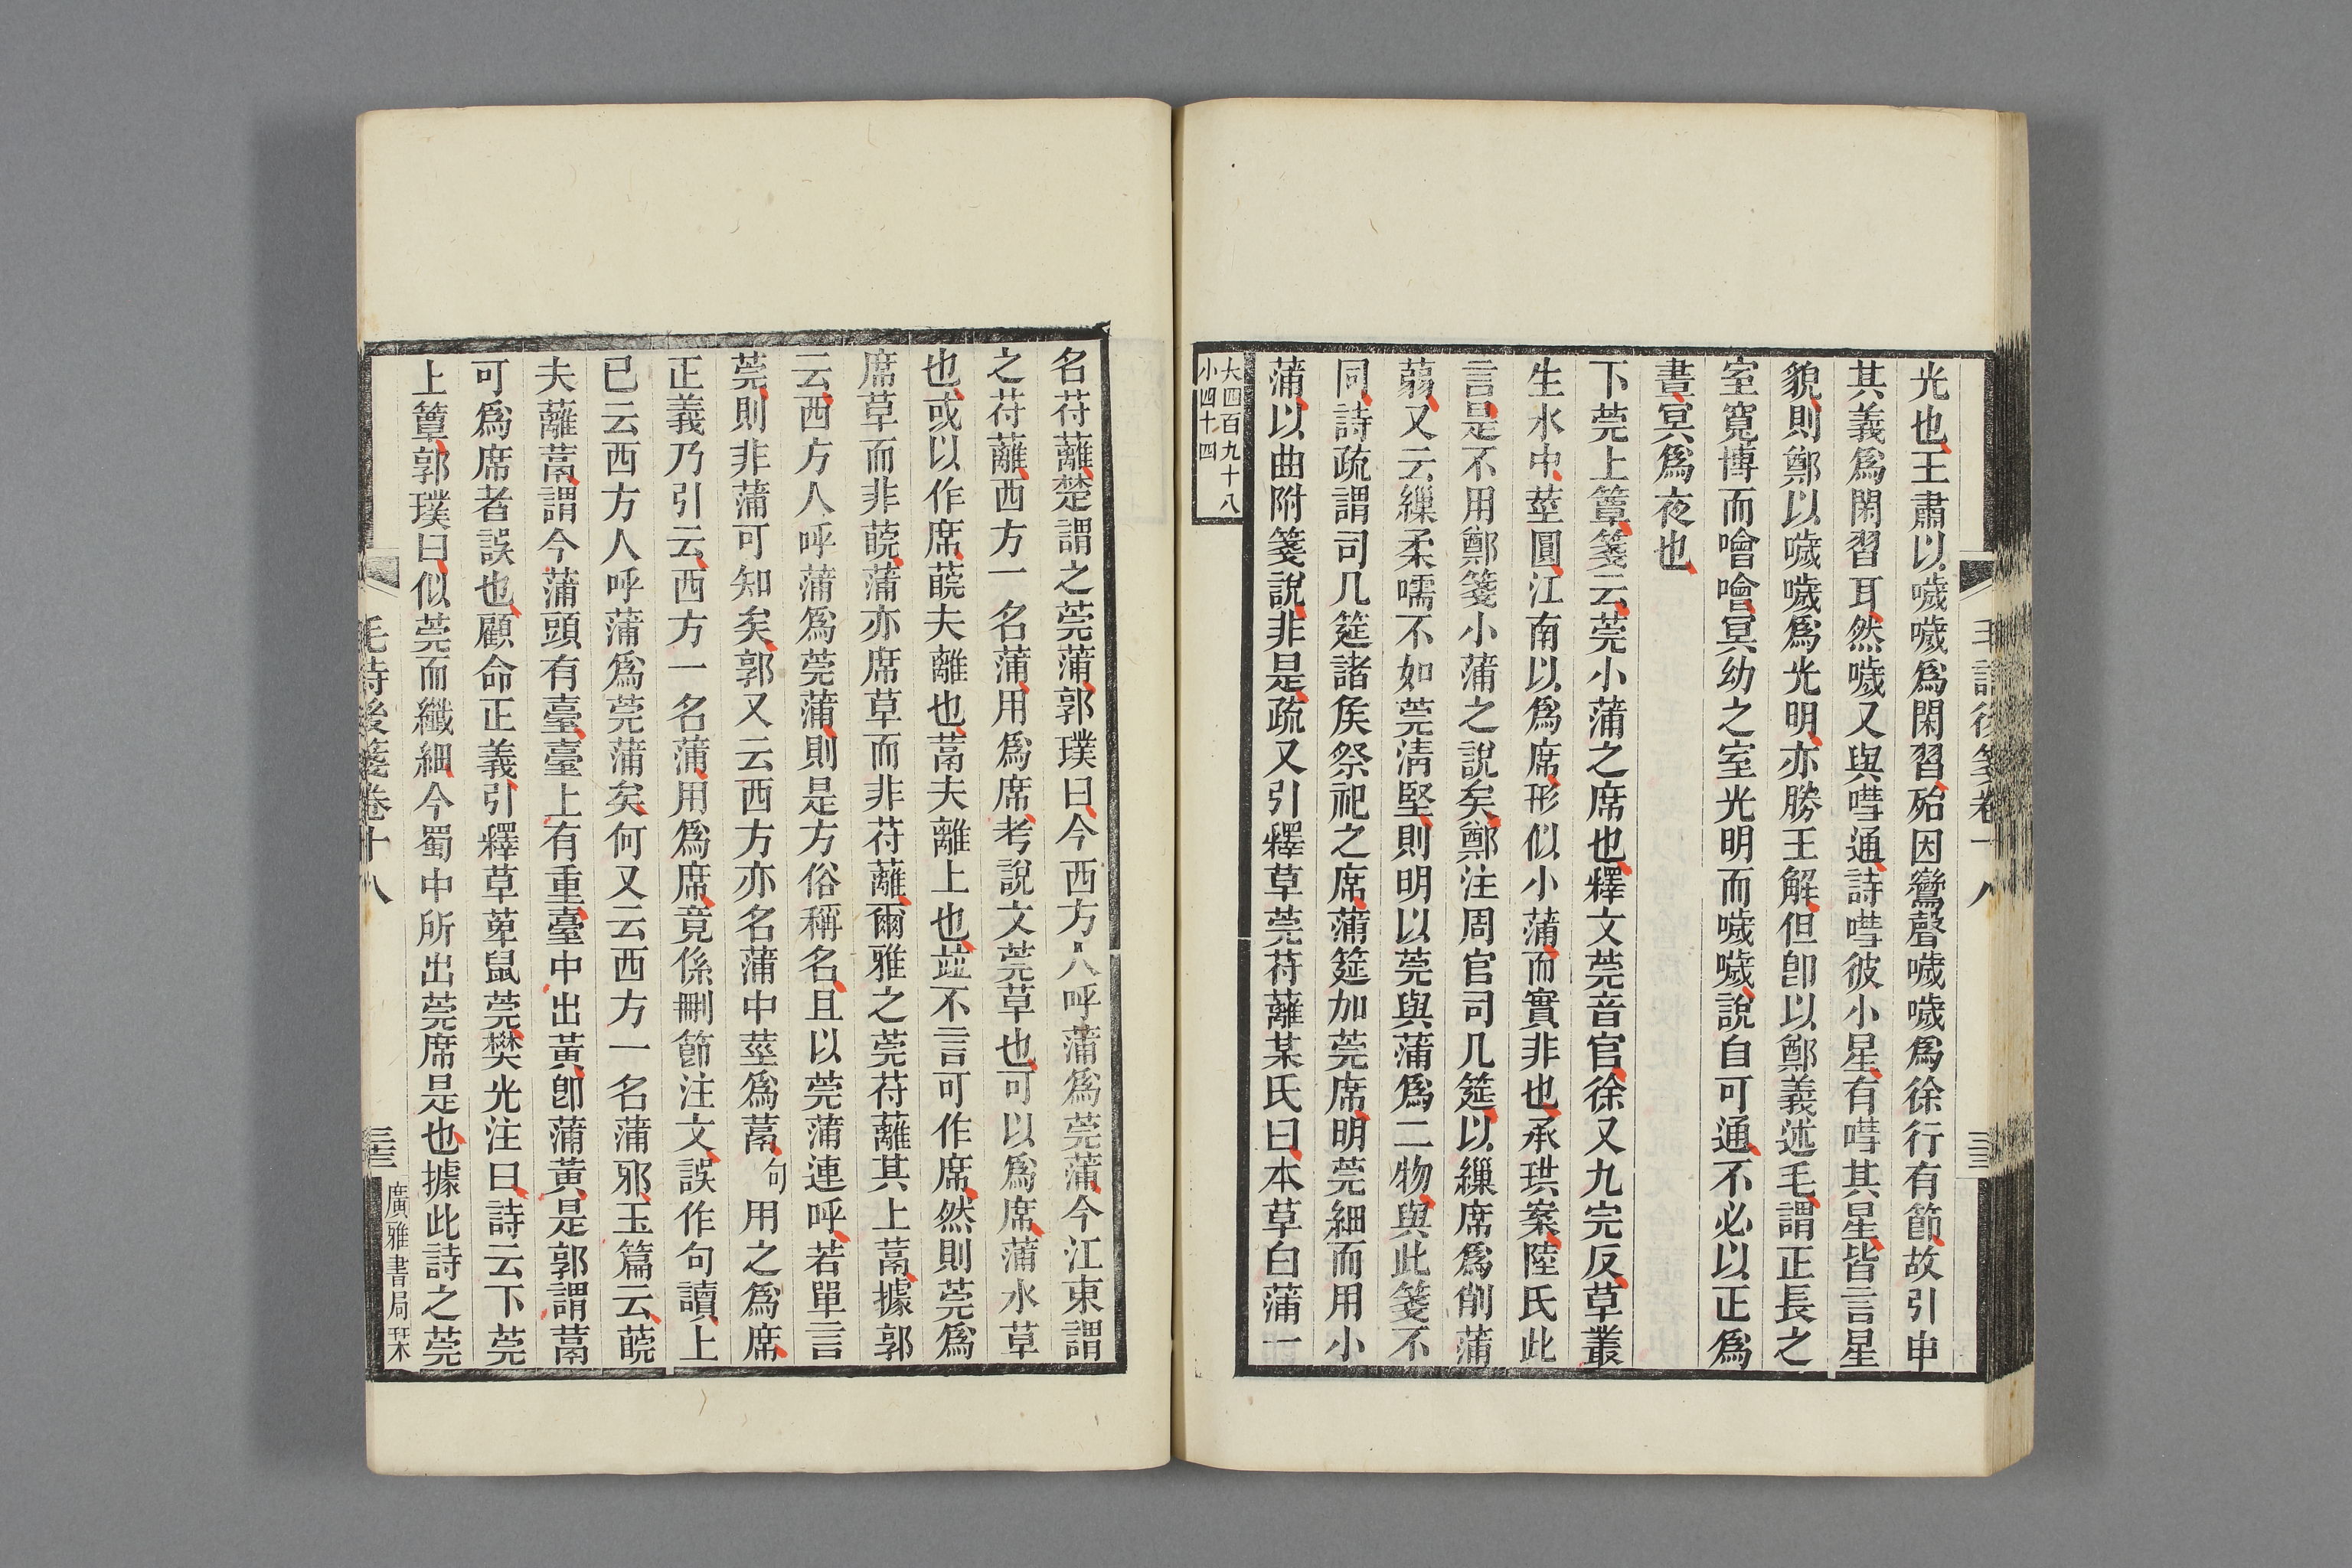 光也王肅以噦噦爲閑習殆因鸞聲噦噦爲徐行有節故引申
其義爲閑習耳然噦又與嘒通詩嘒彼小星有嘒其星皆言星
貌則鄭以噦噦爲光明亦勝王解但卽以鄭義述毛謂正長之
室寬博而噲噲冥幼之室光明而噦噦說自可通不必以正爲
晝冥爲夜也
下莞上簟箋云莞小蒲之席也釋文莞音官徐又九完反草叢
生水中莖圓江南以爲席形似小蒲而實非也承珙案陸氏此
言是不用鄭箋小蒲之說矣鄭注周官司几筵以繅席爲削蒲
蒻又云繅柔嚅不如莞淸堅則明以莞與蒲爲二物與此箋不
同詩疏謂司几筵諸矦祭祀之席蒲筵加莞席明莞細而用小
蒲以曲附箋說非是疏又引釋草莞苻蘺某氏曰本草白蒲一
大四百九十八
小四十四
名苻蘺楚謂之莞蒲郭璞曰今西方人呼蒲爲莞蒲今江東謂
之苻蘺西方一名蒲用爲席考說文莞草也可以爲席蒲水草
也或以作席藨夫離也蒚夫離上也竝不言可作席然則莞爲
席草而非蒲亦席草而非苻蘺爾雅之莞苻蘺其上蒚據郭
云西方人呼蒲爲莞蒲則是方俗稱名且以莞蒲連呼若單言
莞則非蒲可知矣郭又云西方亦名蒲中莖爲蒚句用之爲席
正義乃引云西方一名蒲用爲席竟係刪節注文誤作句讀上
已云西方人呼蒲爲莞蒲矣何又云西方一名蒲邪玉篇云
夫蘺蒚謂今蒲頭有臺臺上有重臺中出黃卽蒲黃是郭謂蒚
可爲席者誤也顧命正義引釋草萆鼠莞樊光注曰詩云下莞
上簟郭璞曰似莞而纖細今蜀中所出莞席是也據此詩之莞
毛詩後箋卷十八
三三
廣雅書局栞